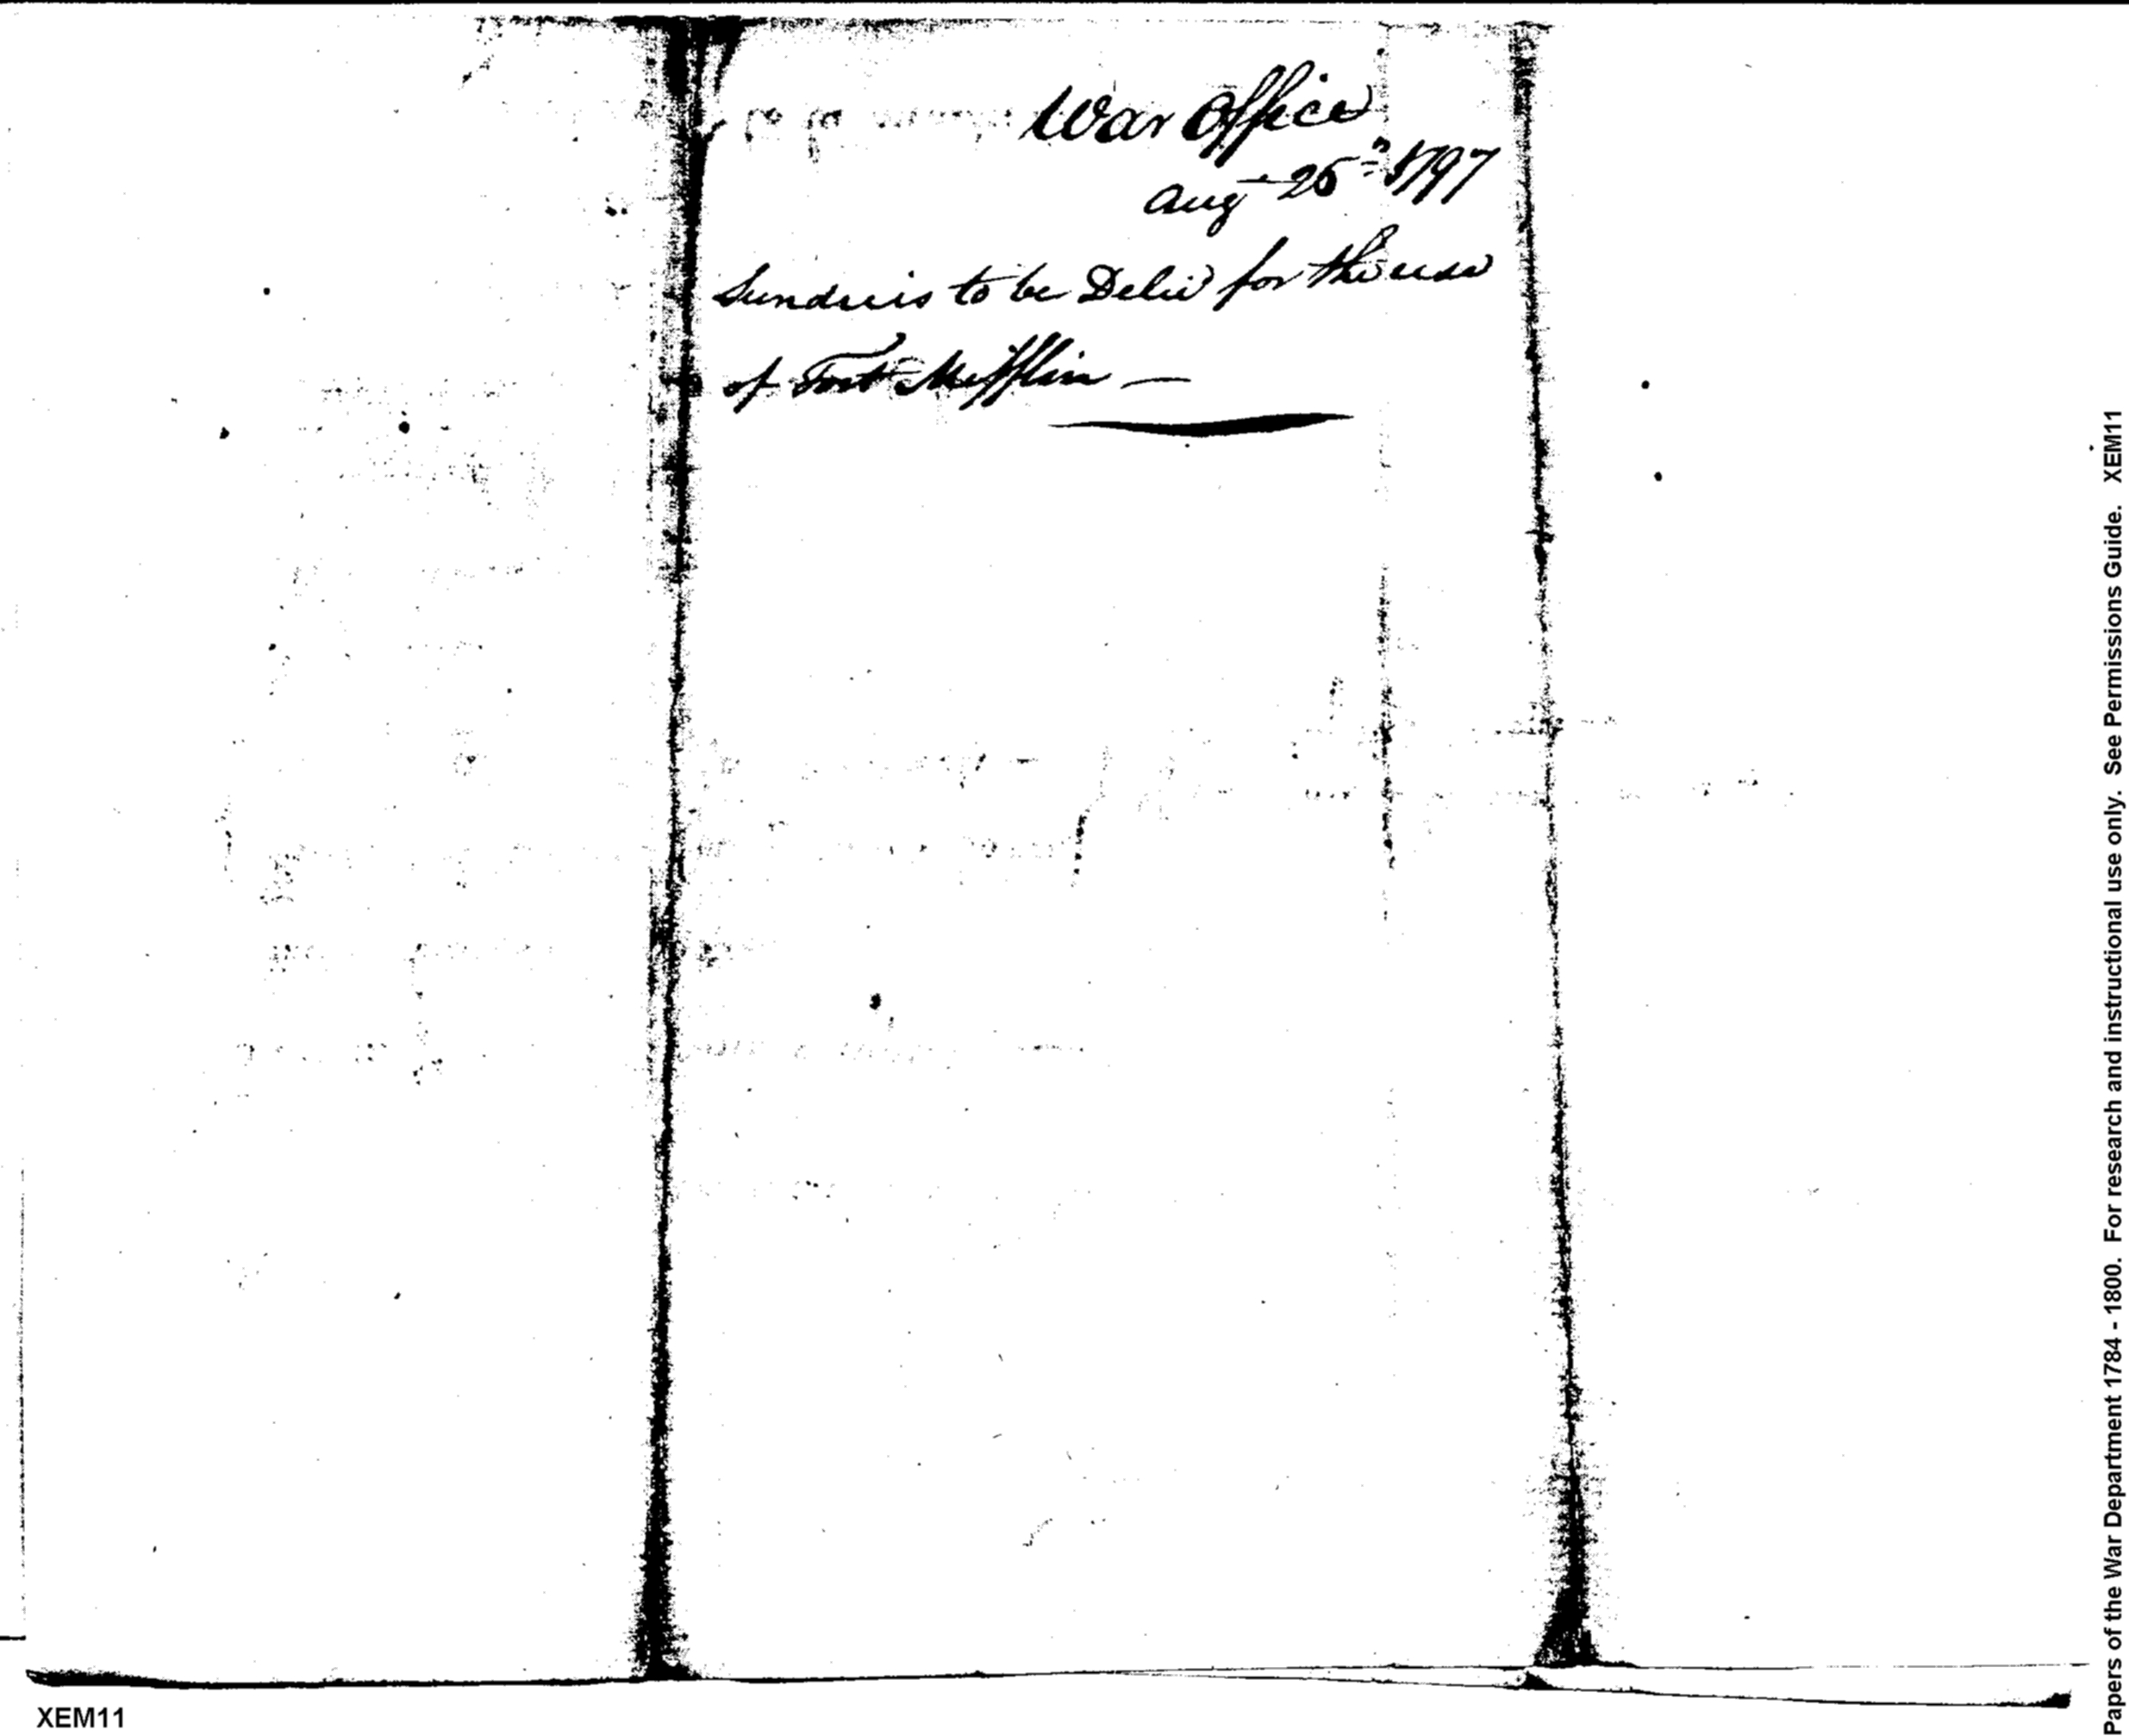 War Office
Aug 25th 1797
Sundries to be Delid for the use
of Fort Mifflin —
XEM11
Papers of the War Department 1784 - 1800. For research and instructional use only. See Permissions Guide. XEM11